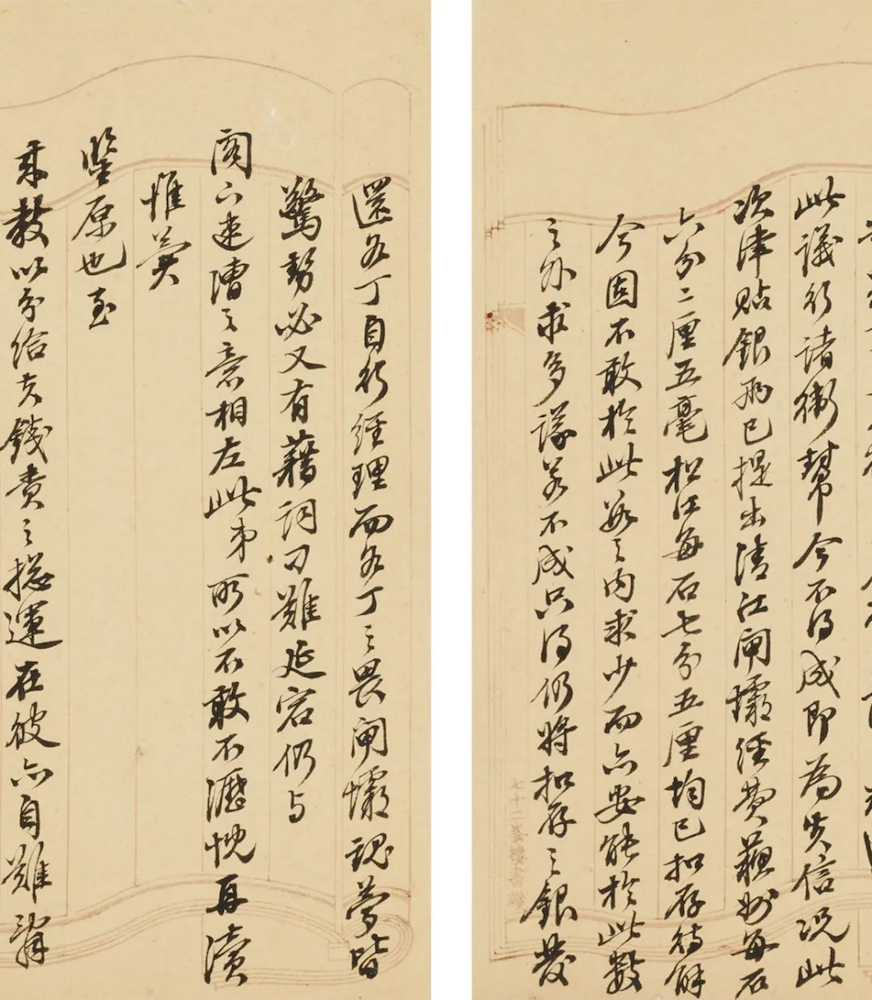 此議行諸衛幫今不得成即為失信況此
次津貼銀兩已提出清江閘壩經費蘇州每石
六分二厘五毫松江每石七分五厘均已扣存待解
今固不敢於此數之內求少而亦安能於此數
之外求多議若不成只得仍將扣存之銀發
還各丁自行經理而各丁之畏閘壩魂夢皆
驚勢必又有藉詞刁難延宕仍与
閣下速漕之意相左此弟所以不敢不瀝忱再瀆
惟冀
鑒原也至
來教以分給夫錢責之總運在彼亦自難辭